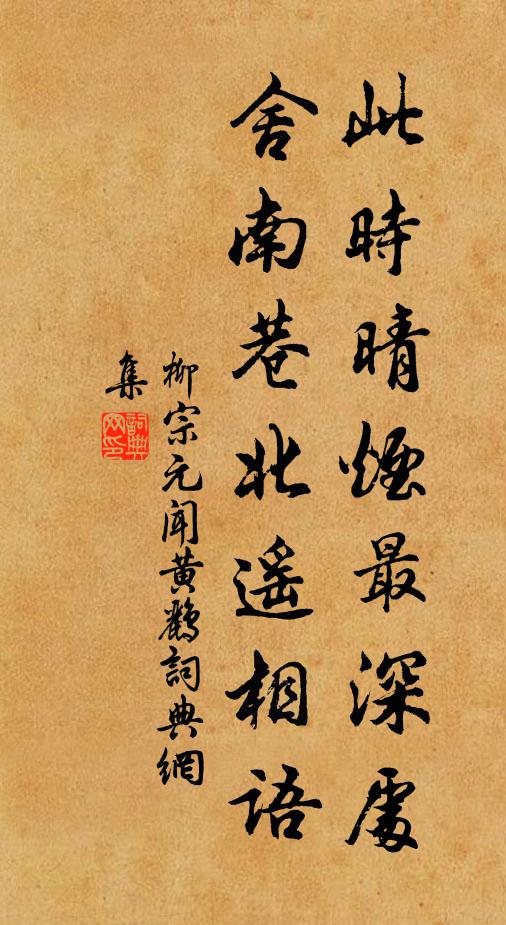 此時晴煙最深處
舍南巷北遥相語
柳宗元聞黄鸝詞典網
集
詞典
网印